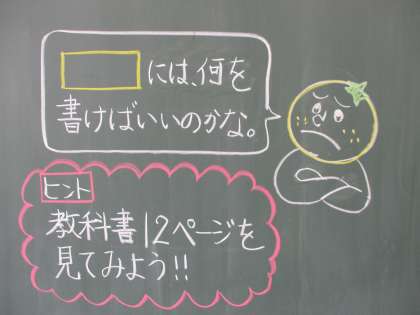 には、何を
書けばいいのかな。
ヒント
教科書12ページを
見てみよう!!